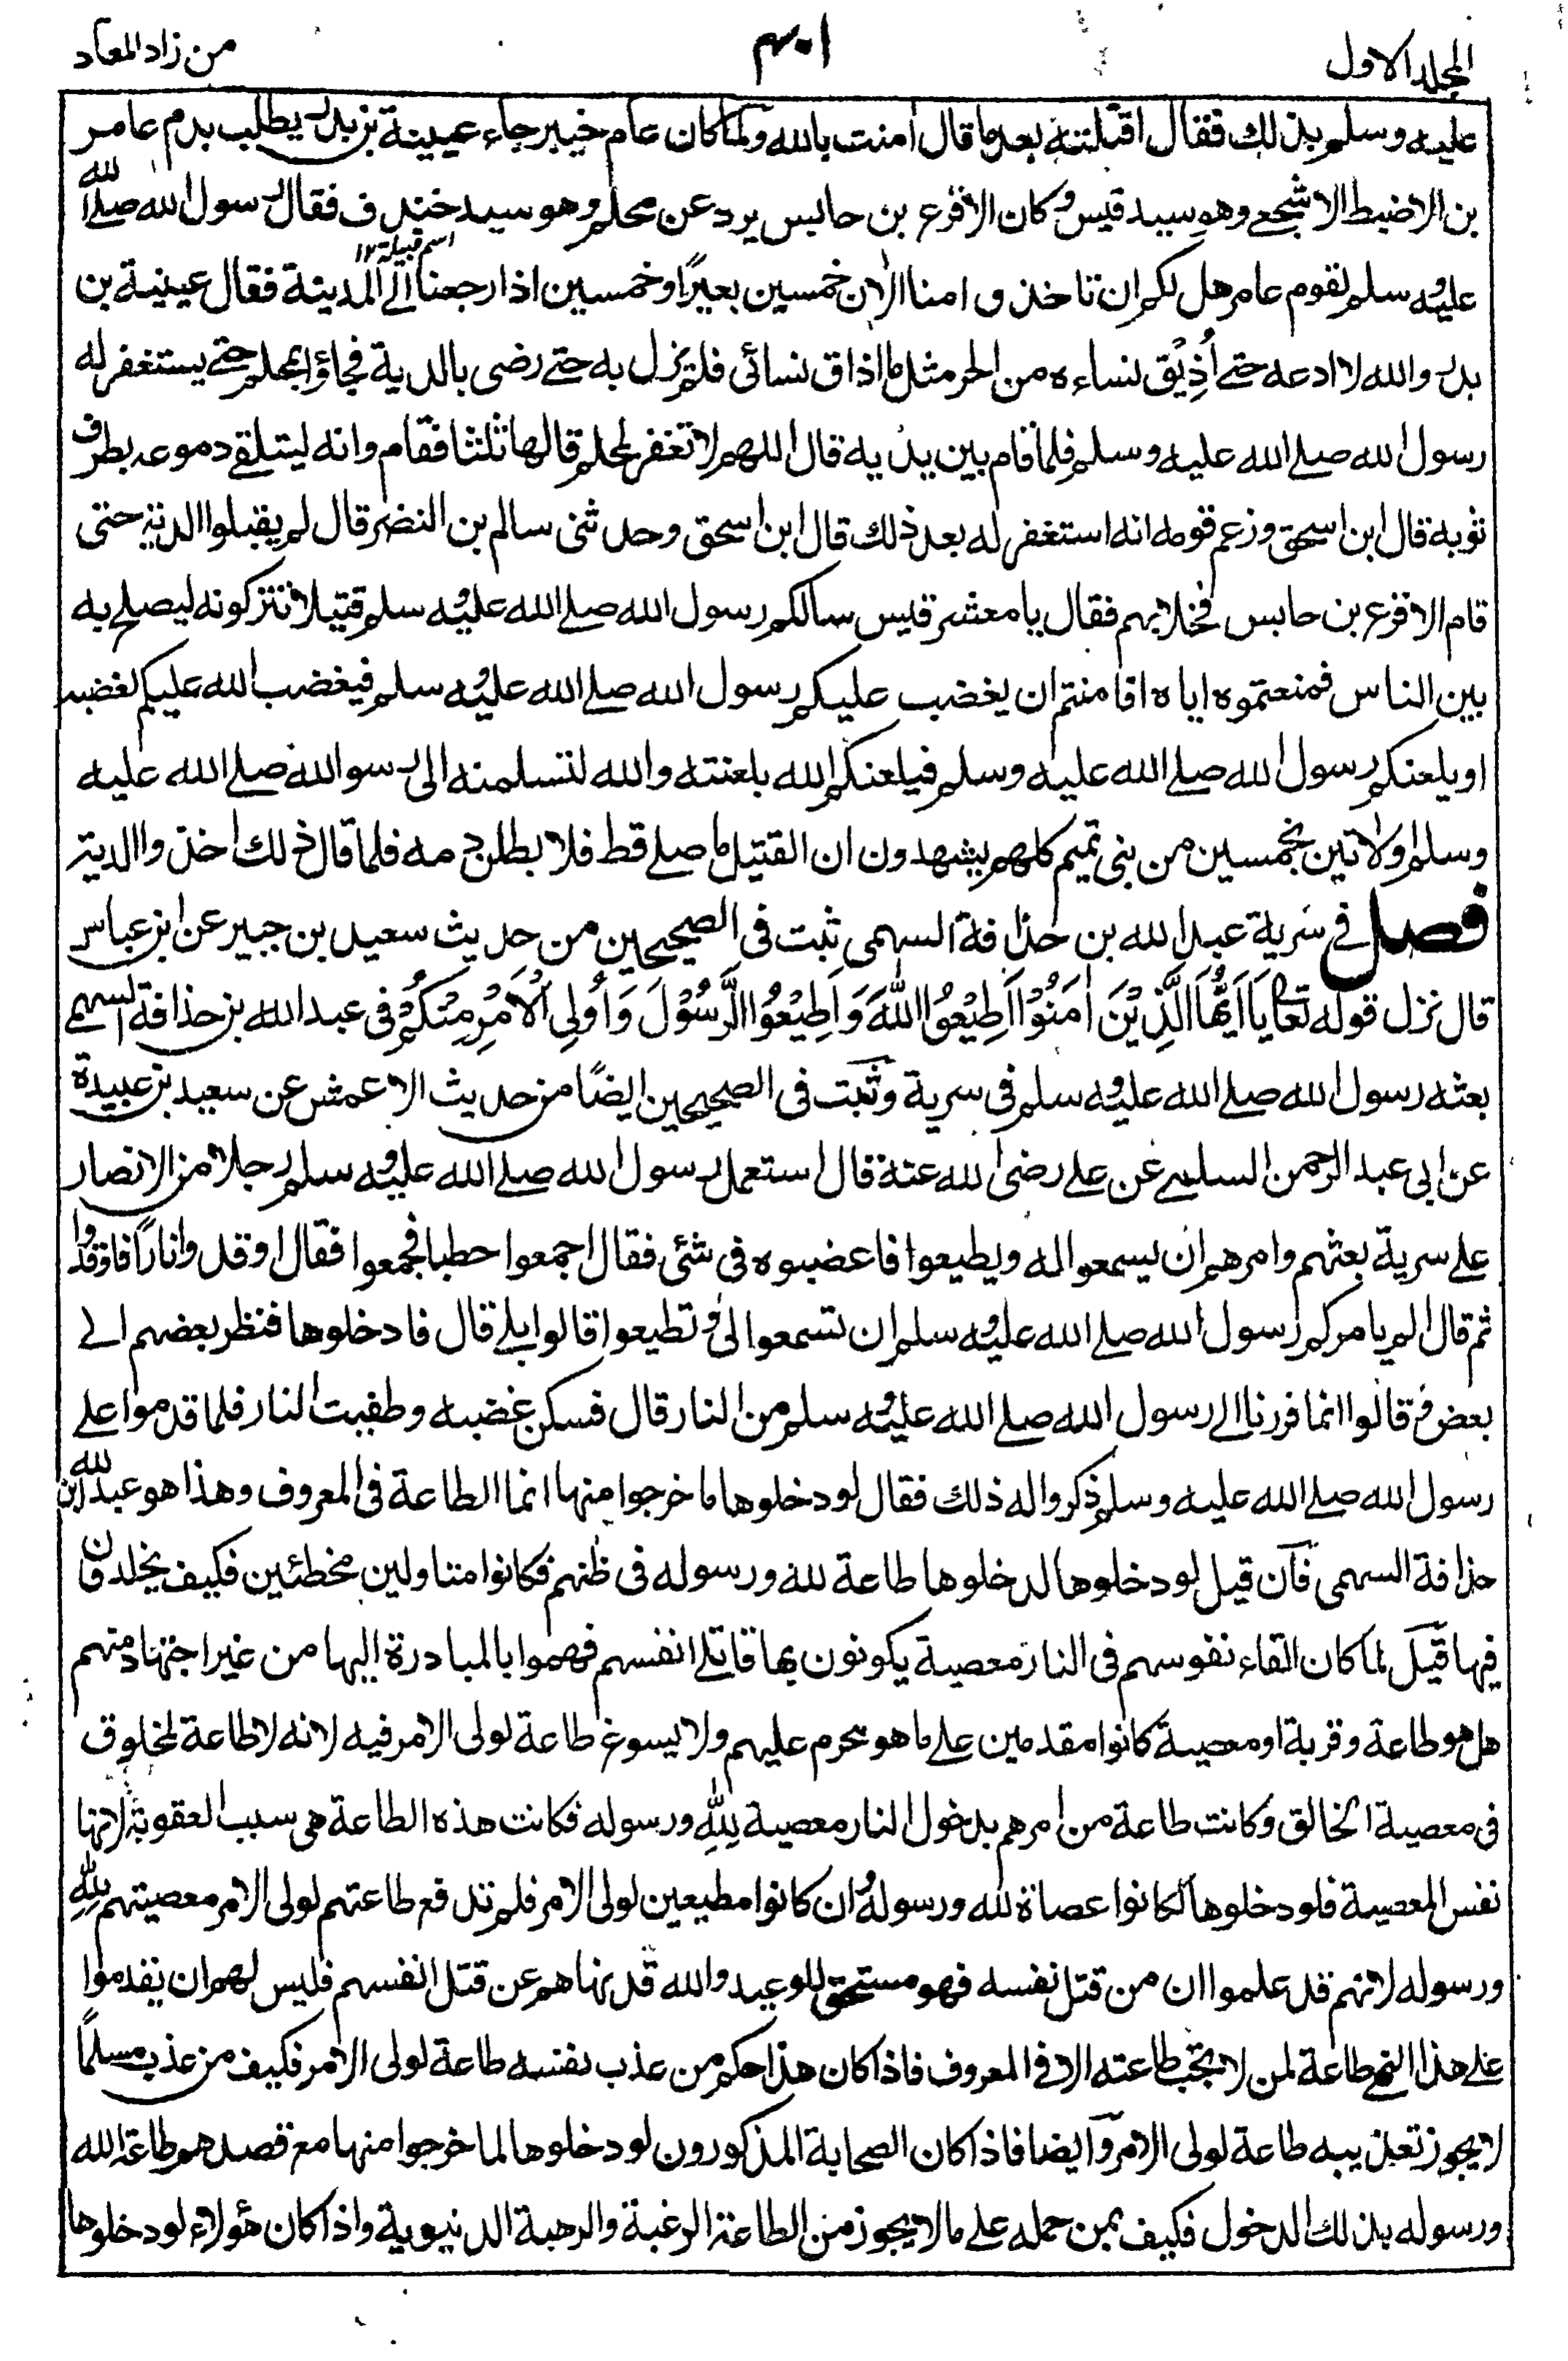 المجلد الاول
٤٠١
من زاد المعاد
عليه وسلم بذلك فقال اقتلته بعد ما قال امنت بالله ولما كان عام خيبر جاء عيينة بن بدر يطلب بدم عامر
بن الاضبط الاشجعي وهو سيد قيس وكان الاقرع بن حابس يرد عن محلم وهو سيد خندف فقال رسول الله صلى الله
اسم قبيلة ١٢
عليه وسلم لقوم عامر هل لكم ان تاخذوا منا الان خمسين بعيرًا وخمسين اذا رجعنا الى المدينة فقال عيينة بن
بدر والله لا ادعه حتى أُذِيْق نساءه من الحر مثل ما اذاق نسائى فلم يزل به حتى رضى بالدية فجاؤا بمحلم حتى يستغفر له
رسول الله صلى الله عليه وسلم فلما قام بين يديه قال اللهم لا تغفر لمحلم قالها ثلثا فقام وانه ليتلقى دموعه بطرف
ثوبه قال ابن اسحق وزعم قومه انه استغفر له بعد ذلك قال ابن اسحق وحدثنى سالم بن النضر قال لم يقبلوا الدية حتى
قام الاقرع بن حابس فخلا بهم فقال يا معشر قيس سالكم رسول الله صلى الله عليه وسلم قتيلا تتركونه ليصلح به
بين الناس فمنعتموه اياه افامنتم ان يغضب عليكم رسول الله صلى الله عليه وسلم فيغضب الله عليكم لغضبه
او يلعنكم رسول الله صلى الله عليه وسلم فيلعنكم الله بلعنته والله لتسلمنه الى رسوالله صلى الله عليه
وسلم اولاتين بخمسين من بنى تميم كلهم يشهدون ان القتيل ما صلى قط فلا بطلن دمه فلما قال ذلك اخذوا الدية
فصل فى سرية عبد الله بن حذافة السهمى ثبت فى الصحيحين من حديث سعيد بن جبير عن ابن عباس
قال نزل قوله تعالى يَااَيُّهَا الَّذِيْنَ اٰمَنُوْا اَطِيْعُوا اللّٰهَ وَاَطِيْعُوا الرَّسُوْلَ وَاُولِى الْاَمْرِ مِنْكُمْ فى عبد الله بن حذافة السهمى
بعثه رسول الله صلى الله عليه وسلم فى سرية وثبت فى الصحيحين ايضًا من حديث الاعمش عن سعيد بن عبيدة
عن ابى عبد الرحمن السلمى عن على رضى الله عنه قال استعمل رسول الله صلى الله عليه وسلم رجلا من الانصار
على سرية بعثهم وامرهم ان يسمعوا له ويطيعوا فاغضبوه فى شئى فقال اجمعوا حطبا فجمعوا فقال اوقدوا نارًا فاوقدوا
ثم قال الم يامركم رسول الله صلى الله عليه وسلم ان تسمعوا لى وتطيعوا قالوا بلى قال فادخلوها فنظر بعضهم الى
بعض وقالوا انما فررنا الى رسول الله صلى الله عليه وسلم من النار قال فسكن غضبه وطفيت النار فلما قدموا على
رسول الله صلى الله عليه وسلم ذكروا له ذلك فقال لو دخلوها ما خرجوا منها انما الطاعة فى المعروف وهذا هو عبد الله بن
حذافة السهمى فان قيل لو دخلوها لدخلوها طاعة لله ورسوله فى ظنهم فكانوا متاولين مخطئين فكيف يخلدون
فيها قيل لما كان القاء نفوسهم فى النار معصية يكونون بها قاتلى انفسهم فهموا بالمبادرة اليها من غير اجتهاد منهم
هل هو طاعة وقربة او معصية كانوا مقدمين على ما هو محرم عليهم ولا يسوغ طاعة لولى الامر فيه لانه لا طاعة لمخلوق
فى معصية الخالق وكانت طاعة من امرهم بدخول النار معصية لِلّٰهِ ورسوله فكانت هذه الطاعة هى سبب العقوبة لانها
نفس المعصية فلو دخلوها لكانوا عصاة لله ورسوله وان كانوا مطيعين لولى الامر فلم تدفع طاعتهم لولى الامر معصيتهم لِلّٰهِ
ورسوله لانهم قد علموا ان من قتل نفسه فهو مستحق للوعيد والله قد نهاهم عن قتل انفسهم فليس لهم ان يقدموا
على هذا النهى طاعة لمن لا تجب طاعته الا فى المعروف فاذا كان هذا حكم من عذب نفسه طاعة لولى الامر فكيف من عذب مسلمًا
لا يجوز تعذيبه طاعة لولى الامر وايضا فاذا كان الصحابة المذكورون لو دخلوها لما خرجوا منها مع قصدهم طاعة الله
ورسوله بذلك الدخول فكيف بمن حمله على ما لا يجوز من الطاعة الرغبة والرهبة الدنيوية واذا كان هؤلاء لو دخلوها